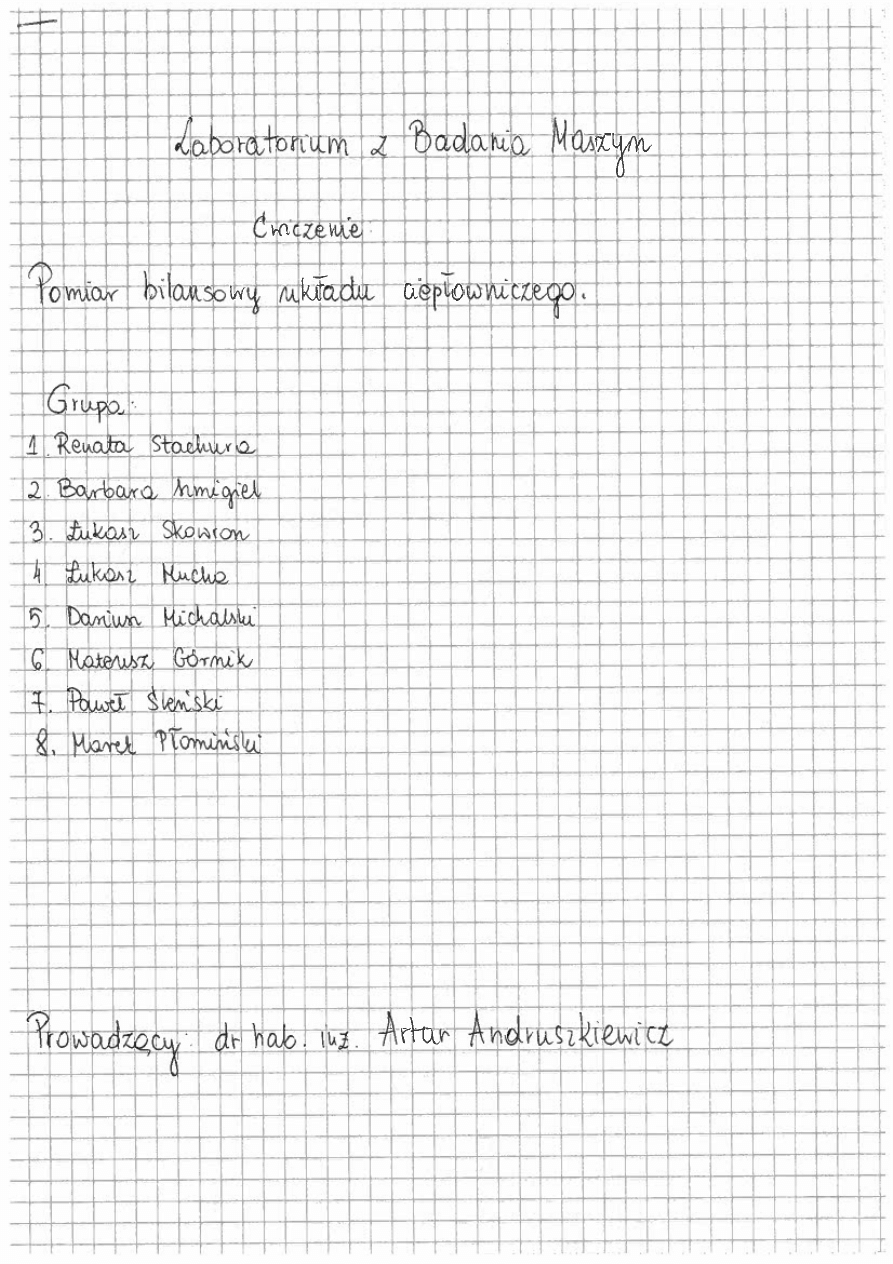 Laboratorium z Badania Maszyn
Ćwiczenie:
Pomiar bilansowy układu ciepłowniczego.
Grupa:
1. Renata Stachura
2. Barbara
3. Łukasz Skowron
4 Łukasz Mucha
5. Dariusz Michalski
6 Mateusz Górnik
7. Paweł Śleński
8. Marek Płomiński
Prowadzący: dr hab. inż. Artur Andruszkiewicz